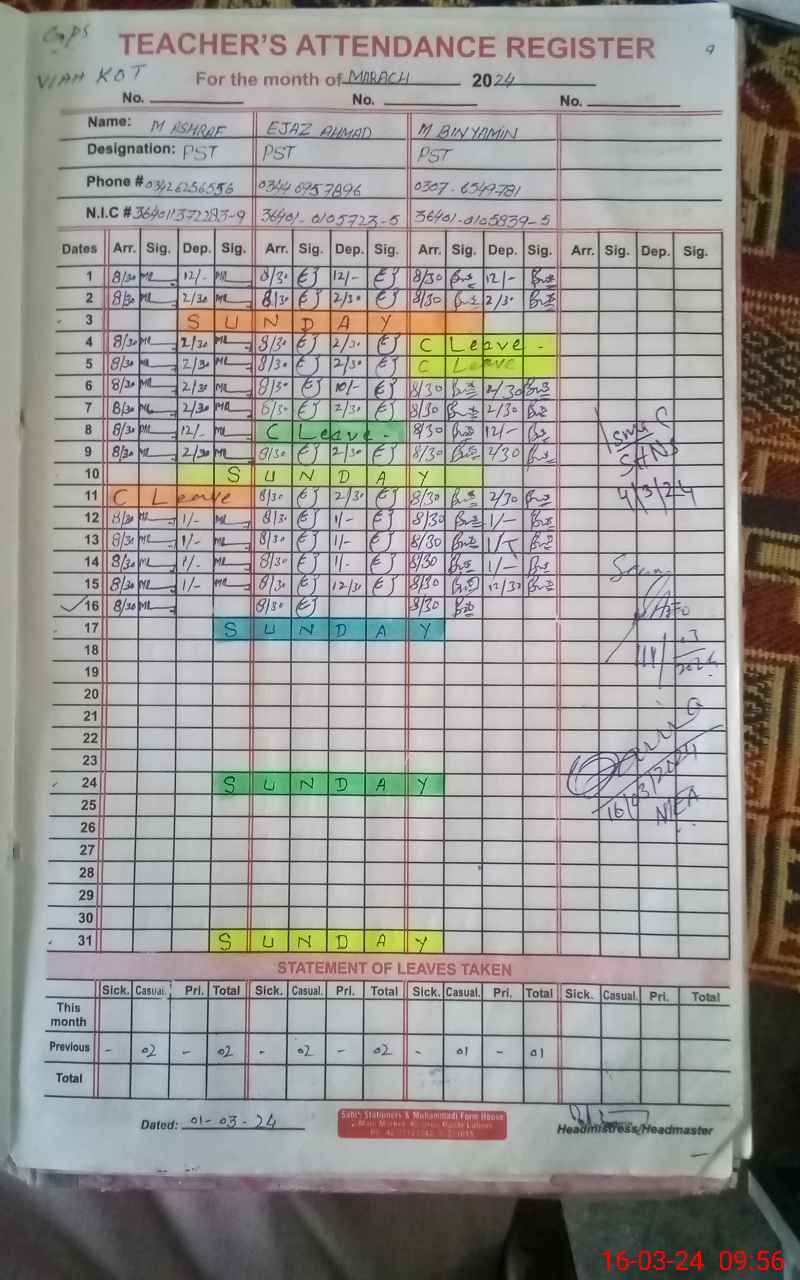 GPS
TEACHER'S ATTENDANCE REGISTER
9
VIAH KOT
For the month of MARACH 2024
No. No. No.
Name: M ASHRAF EJAZ AHMAD M BINYAMIN
Designation: PST PST PST
Phone # 03426256556 0344 6957896 0307-6549781
N.I.C # 364011372283-9 36401-0105723-5 36401-0105839-5
Dates Arr. Sig. Dep. Sig. Arr. Sig. Dep. Sig. Arr. Sig. Dep. Sig. Arr. Sig. Dep. Sig.
1 8/30 12/- 8/30 EJ 12/- EJ 8/30 12/-
2 8/30 2/30 8/30 EJ 2/30 EJ 8/30 2/30
3 SUNDAY
4 8/30 2/30 8/30 EJ 2/30 EJ C Leave -
5 8/30 2/30 8/30 EJ 2/30 EJ C Leave
6 8/30 2/30 8/30 EJ 10/- EJ 8/30 2/30
7 8/30 2/30 8/30 EJ 2/30 EJ 8/30 2/30
8 8/30 12/- C Leave - 8/30 12/-
9 8/30 2/30 8/30 EJ 2/30 EJ 8/30 2/30
SHNS
4/3/24
10 SUNDAY
11 C Leave 8/30 EJ 2/30 EJ 8/30 2/30
12 8/30 1/- 8/30 EJ 1/- EJ 8/30 1/-
13 8/30 1/- 8/30 EJ 1/- EJ 8/30 1/-
14 8/30 1/- 8/30 EJ 1/- EJ 8/30 1/-
15 8/30 1/- 8/30 EJ 12/30 EJ 8/30 12/30
16 8/30 8/30 EJ 8/30
17 SUNDAY
18
19
20
21
22
23
24 SUNDAY
16/03/2024
25
26
27
28
29
30
31 SUNDAY
STATEMENT OF LEAVES TAKEN
Sick. Casual. Pri. Total Sick. Casual. Pri. Total Sick. Casual. Pri. Total Sick. Casual. Pri. Total
This month
Previous - 02 - 02 - 02 - 02 - 01 - 01
Total
Dated: 01-03-24
Headmistress/Headmaster
16-03-24 09:56